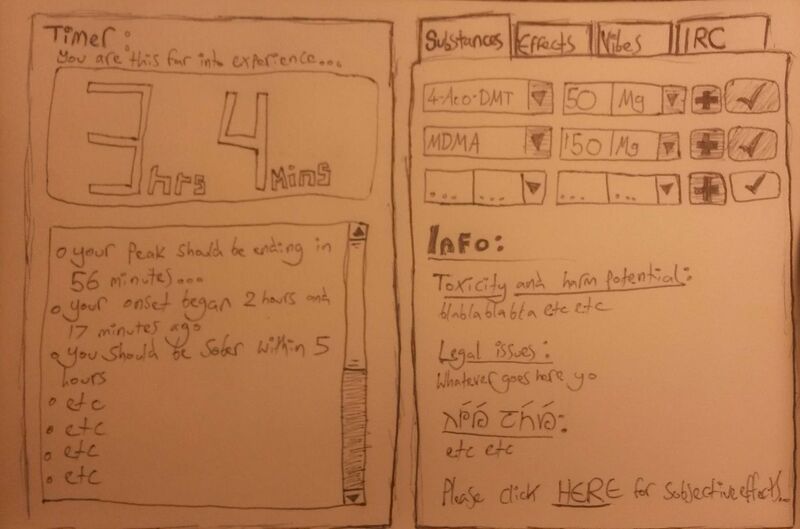 Timer:
You are this far into experience...
3 hrs 4 Mins
o your Peak should be ending in
56 minutes...
o your onset began 2 hours and
17 minutes ago
o you should be sober within 5
hours
o etc
o etc
o etc
o etc
Substances Effects Vibes IRC
4-Aco-DMT 50 Mg
MDMA 150 Mg
... ... ... ...
Info:
Toxicity and harm potential:
blablablabla etc etc
Legal issues:
Whatever goes here yo
etc etc
Please click HERE for subjective effects...